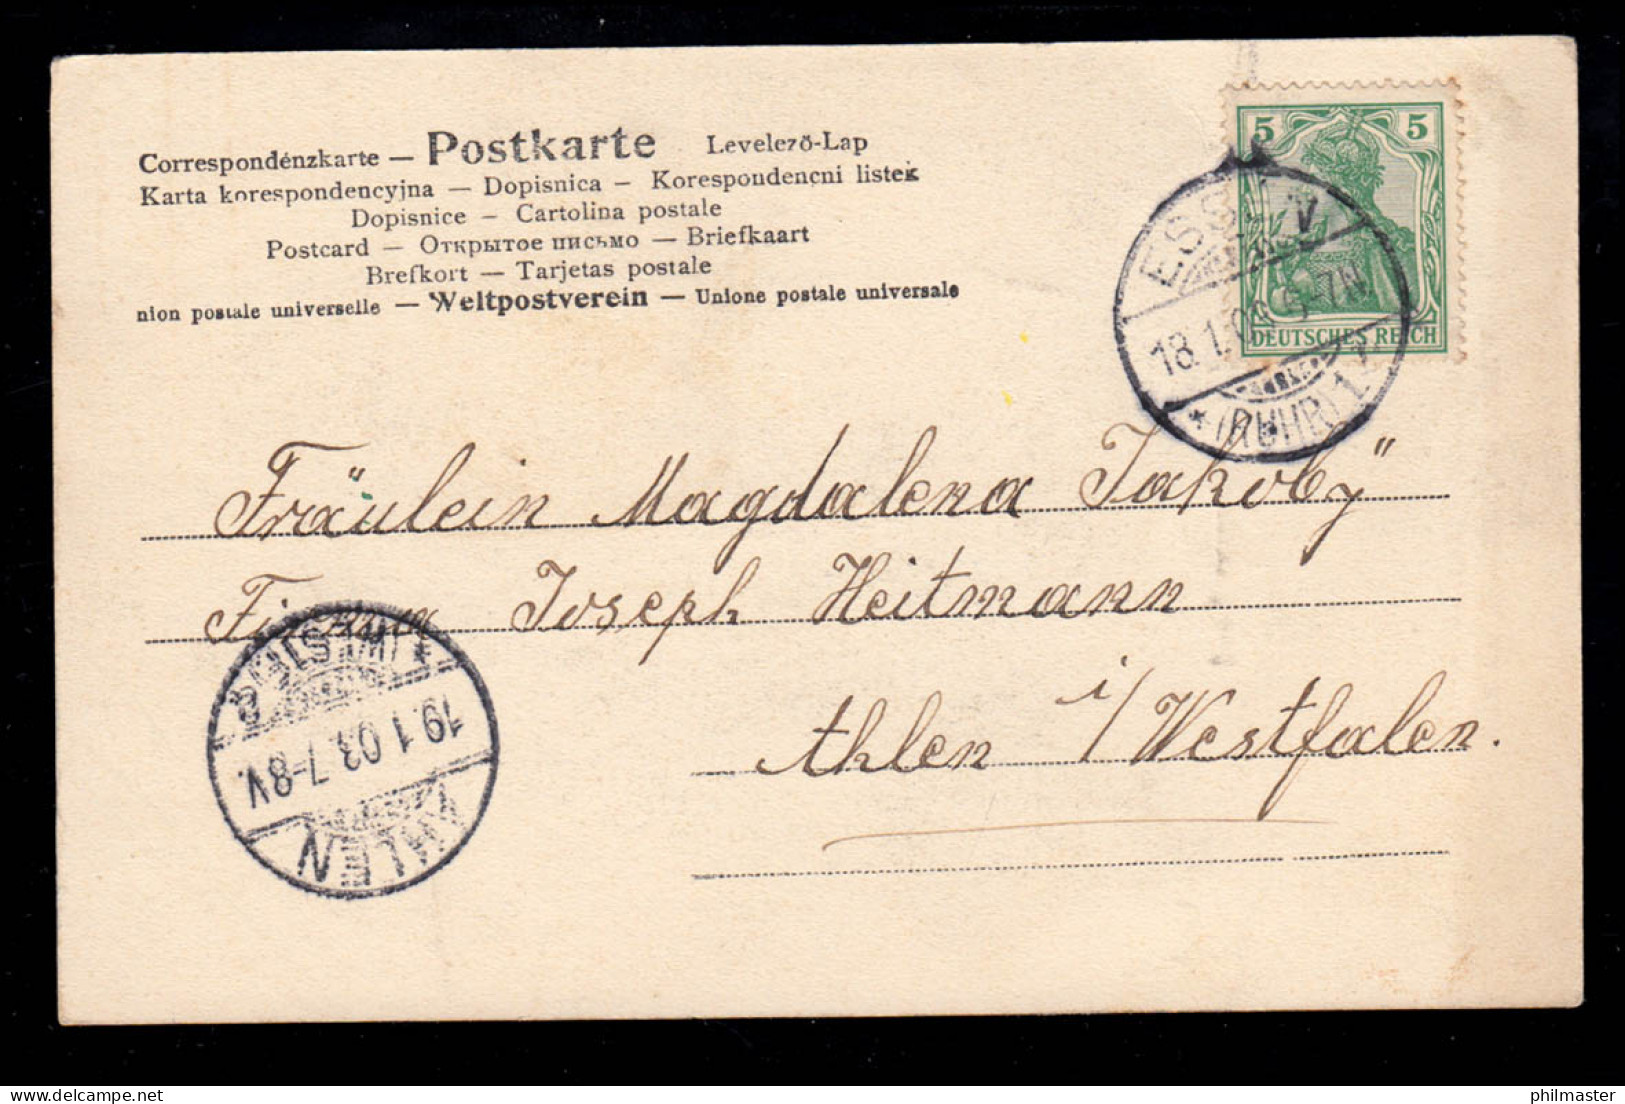 Correspondénzkarte — Postkarte Levelező-Lap
Karta korespondencyjna — Dopisnica — Korespondencni listek
Dopisnice — Cartolina postale
Postcard — Открытое письмо — Briefkaart
Brefkort — Tarjetas postale
nion postale universelle — Weltpostverein — Unione postale universale
5 5
DEUTSCHES REICH
ESSEN
18.1.03. 5-7N
* (RUHR) 1
Fräulein Magdalena Jakoby"
Firma Joseph Heitmann
Ahlen i/Westfalen.
AHLEN
19.1.03.7-8V.
(WESTF.)
delcampe.net
philmaster